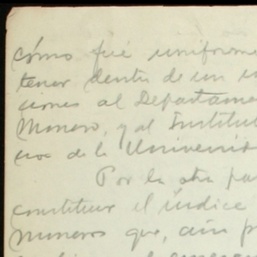 cómo fué uniforme
tener dentro de un
ciones al Departame
Monero, y al Institu
de la Universid
Por la otra pa
constituir el índice
números que, aún p